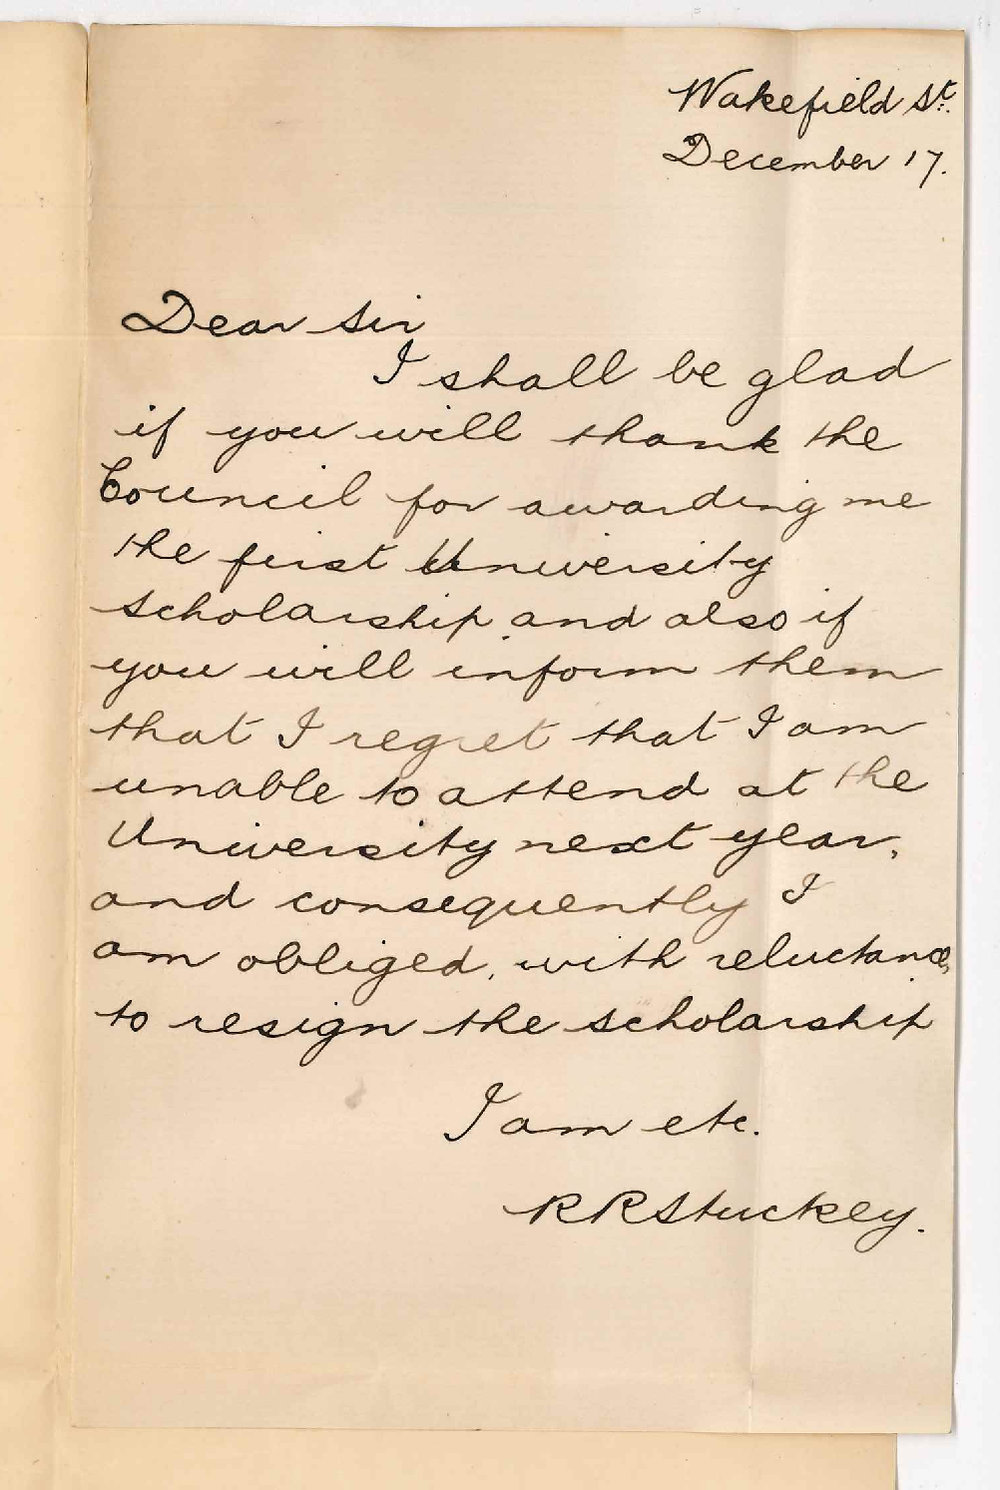 Wakefield St.
December 17.
Dear Sir
I shall be glad
if you will thank the
Council for awarding me
the first University
scholarship and also if
you will inform them
that I regret that I am
unable to attend at the
University next year,
and consequently I
am obliged, with reluctance,
to resign the scholarship
I am etc.
R R Stuckey.